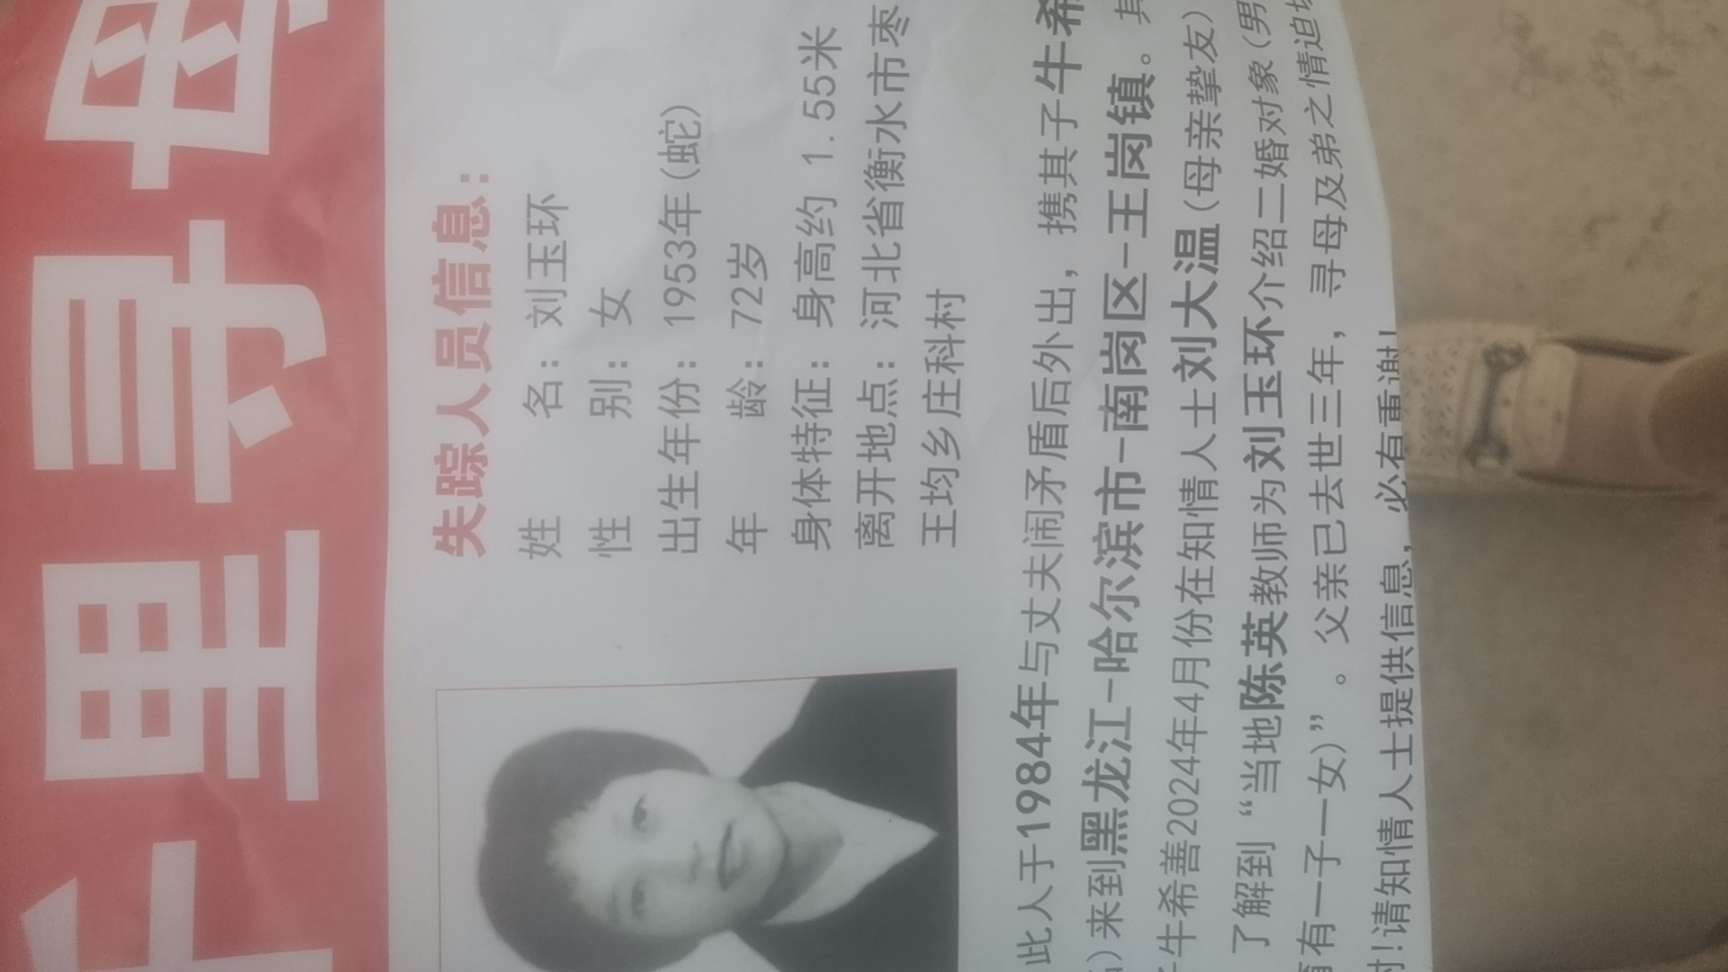 千里寻母
失踪人员信息：
姓 名：刘玉环
性 别：女
出生年份：1953年（蛇）
年 龄：72岁
身体特征：身高约 1.55米
离开地点：河北省衡水市枣
王均乡庄科村
此人于1984年与丈夫闹矛盾后外出，携其子牛希
）来到黑龙江-哈尔滨市-南岗区-王岗镇。其
牛希善2024年4月份在知情人士刘大温（母亲挚友）
了解到“当地陈英教师为刘玉环介绍二婚对象（男
有一子一女）”。父亲已去世三年，寻母及弟之情迫切
！请知情人士提供信息，必有重谢！